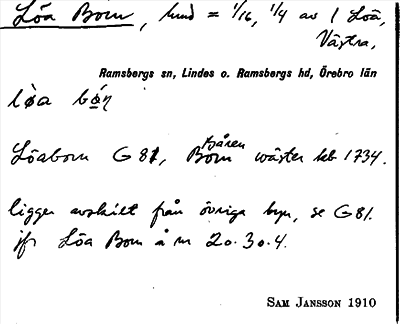 Löa Born, hmd = 1/16, 1/4 av 1 Löa,
Västra,
Ramsbergs sn, Lindes o. Ramsbergs hd, Örebro län
lὸa bǿn̥
Löaborn G 81, Born tjären wäster leb 1734.
ligger avskilt från övriga byn, se G 81.
jfr Löa Born å m 20.30.4.
SAM JANSSON 1910